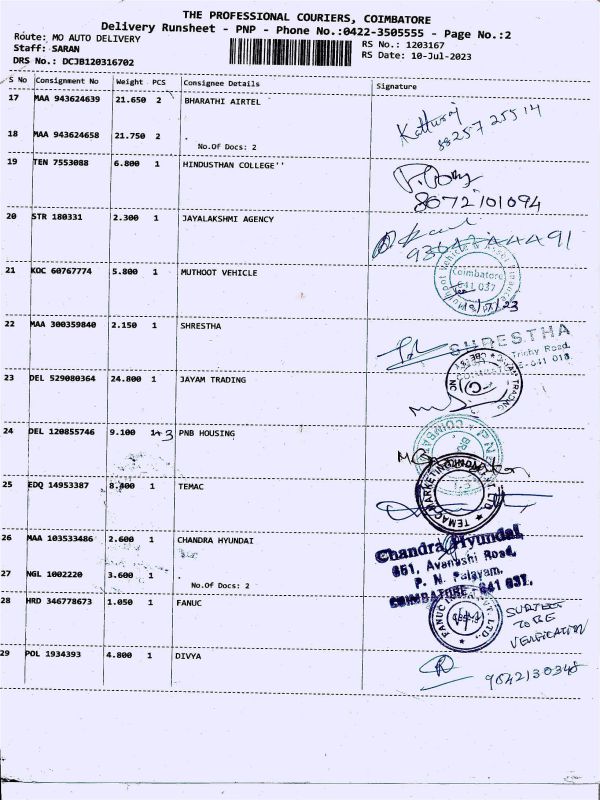 THE PROFESSIONAL COURIERS, COIMBATORE
Delivery Runsheet - PNP - Phone No.:0422-3505555 - Page No.:2
Route: MO AUTO DELIVERY
Staff: SARAN
DRS No.: DCJB120316702
RS No.: 1203167
RS Date: 10-Jul-2023
S No Consignment No Weight PCS Consignee Details Signature
17 MAA 943624639 21.650 2 BHARATHI AIRTEL
18 MAA 943624658 21.750 2 .
No.Of Docs: 2
88257 25514
19 TEN 7553088 6.800 1 HINDUSTHAN COLLEGE''
8072101094
20 STR 180331 2.300 1 JAYALAKSHMI AGENCY
21 KOC 60767774 5.800 1 MUTHOOT VEHICLE
Muthoot Vehicle & Asset Finance
Coimbatore
641 037
22 MAA 300359840 2.150 1 SHRESTHA
SHRESTHA
Trichy Road,
641 018.
23 DEL 529080364 24.800 1 JAYAM TRADING
JAYAM TRADING
24 DEL 120855746 9.100 1+3 PNB HOUSING
25 EDQ 14953387 8.400 1 TEMAC
TEMAC MARKETING PVT LTD
26 MAA 103533486 2.600 1 CHANDRA HYUNDAI
27 NGL 1002220 3.600 1 .
No.Of Docs: 2
Chandra Hyundai
651, Avanashi Road,
P. N. Palayam,
COIMBATORE - 641 037.
28 HRD 346778673 1.050 1 FANUC
FANUC PVT. LTD.,
SUBJECT
TO BE
VERIFICATION
29 POL 1934393 4.800 1 DIVYA
9042130348